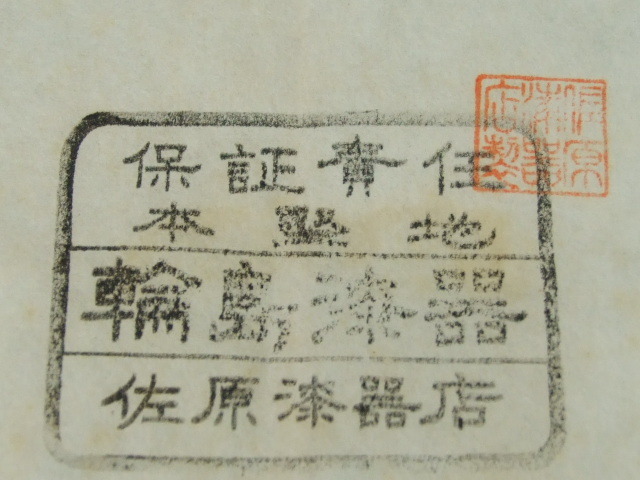 保証責任
本堅地
輪島漆器
佐原漆器店
佐原漆器店製